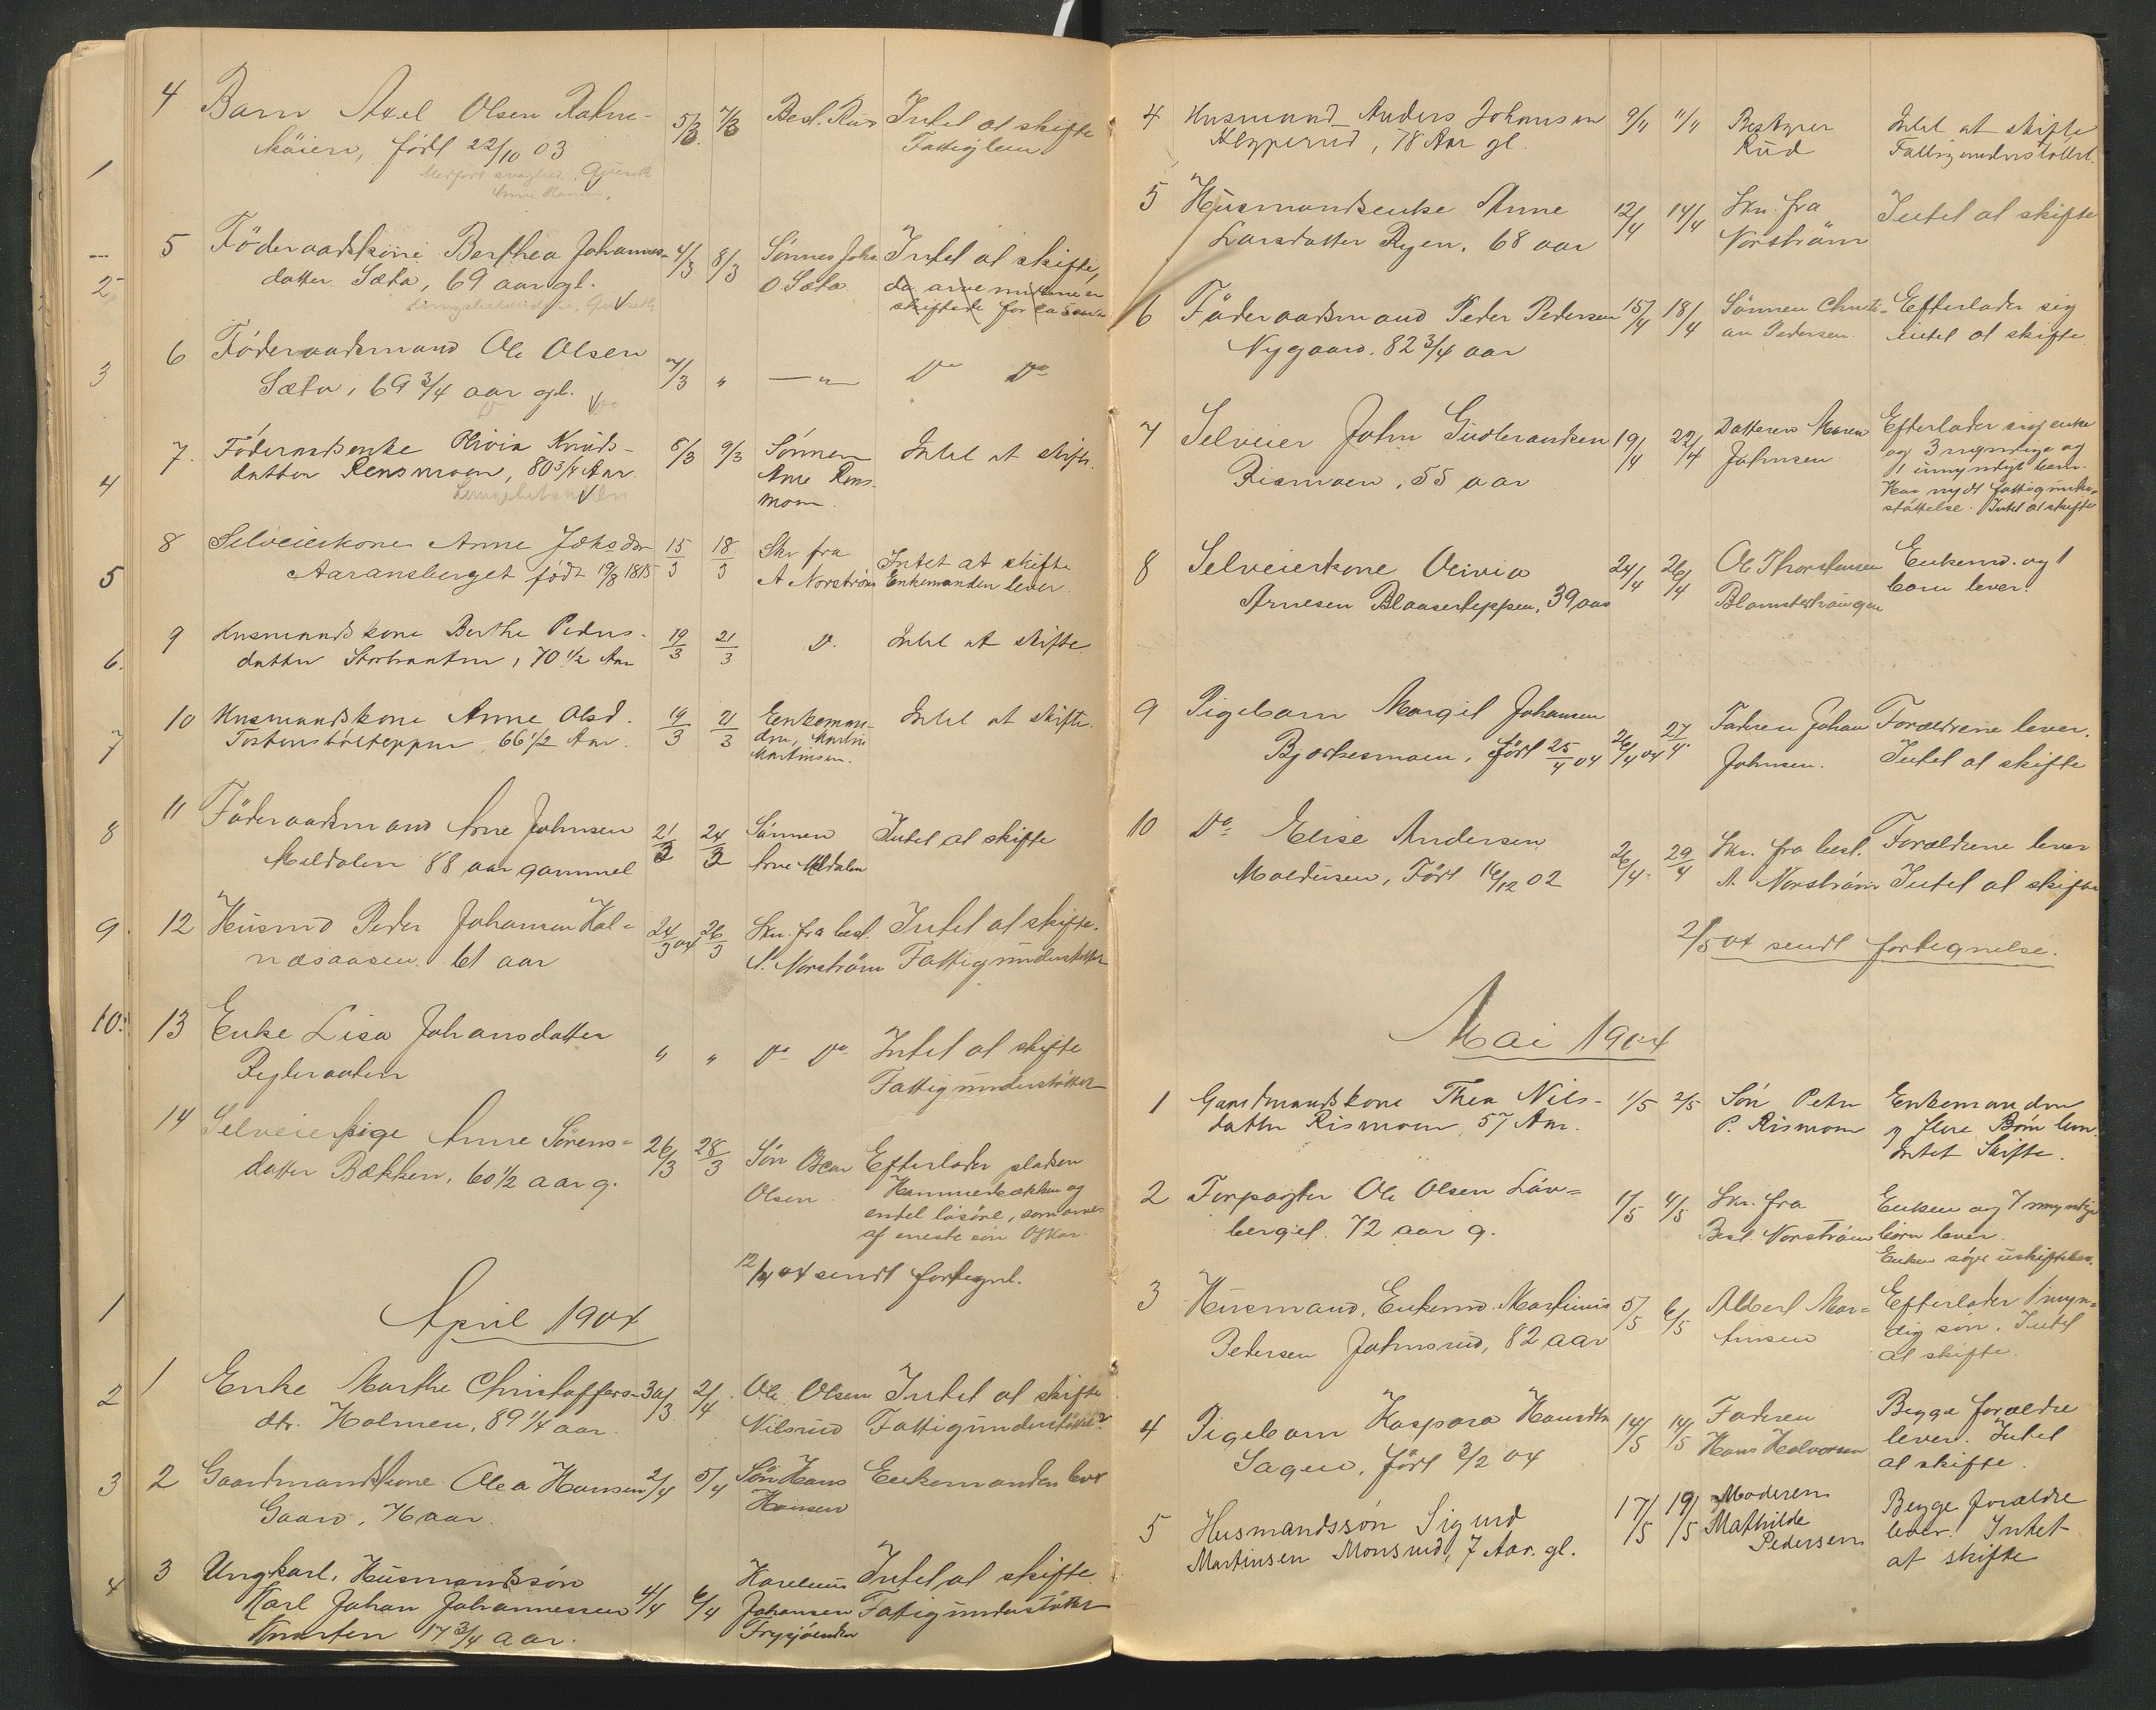 4 Barn Axel Olsen Rahne- 5/3 7/3 Best. Rud Intet at skifte
köien, födt 22/10 03 Fattiglem
5 Föderaadskone Berthea Johannes- 4/3 8/3 Sønnen Johs. Intet at skifte,
datter Sæta, 69 aar gl. O Sæta da arvemidlerne er
skiftede for ca 5 aar
6 Föderaadsmand Ole Olsen
Sæta, 69 3/4 aar gl. 7/3 " — " — Do Do
7. Föderaadsenke Olivia Knuds- 8/3 9/3 Sønnen Intet at skifte.
datter Rensmoen, 80 3/4 Aar. Arne Rens-
moen.
8 Selveierkone Anne Johsdr 15/3 18/3 Skr fra Intet at skifte
Aaransberget født 19/8 1815 A Norström Enkemanden lever.
9 Husmandskone Berthe Peders- 19/3 21/3 D. Intet at skifte.
datter Storbraaten, 70 1/2 Aar
10 Husmandskone Anne Olsd. 19/3 21/3 Enkeman- Intet at skifte.
66 1/2 Aar. den, Martin
Martinsen.
11 Föderaadsmand Arne Johnsen 21/3 24/3 Sønnen Intet at skifte
Meldalen 88 aar gammel Arne Meldalen
12 Husmd Peder Johansen Kal- 24/3 04 26/3 Skr. fra best. Intet at skifte.
næsaasen 61 aar A. Norström Fattigunderstöttet
13 Enke Lisa Johansdatter " " Do Do Intet at skifte
Fattigunderstöttet
14 Selveierpige Anne Sörens- 26/3 28/3 Søn Oscar Efterlader pladsen
datter Bækken, 60 1/2 aar g. Olsen Hammerbækken og
endel lösöre, som arves
af eneste søn Oskar.
12/4 04 sendt fortegnl.
April 1904
1 Enke Marthe Christoffers- 30/3 2/4 Ole Olsen Intet at skifte
dtr. Holmen, 89 1/4 aar. Nilsrud Fattigunderstöttet
2 Gaardmandskone Olea Hansen 2/4 5/4 Søn Hans Enkemanden lever
Gaard, 76 aar. Hansen
3 Ungkarl, Husmandssön Karelius Intet at skifte
Karl Johan Johannessen 4/4 6/4 Johansen Fattigunderstöttet
17 3/4 aar.
4 Husmand Anders Johansen 9/4 11/4 Bestyrer Intet at skifte
Klopperud, 78 Aar gl. Rud Fattigunderstøttet.
5 Husmandsenke Anne 12/4 14/4 Skr. fra Intet at skifte
Larsdatter Ryen, 68 aar Norström
6 Föderaadsmand Peder Pedersen 15/4 18/4 Sønnen Christi- Efterlader sig
Nygaard, 82 3/4 aar an Pedersen. intet at skifte
7 Selveier John Gudbrandsen 19/4 22/4 Datteren Maren Efterlader sig enke
Rismoen, 55 aar Johnsen og 3 myndige og
1 umyndigt barn.
Har nydt fattigunder-
støttelse. Intet at skifte
8 Selveierkone Olivia 24/4 26/4 Ole Thorstensen Enkemd. og 1
Arnesen Blaaserteppen, 39 aar barn lever.
9 Pigebarn Margit Johansen 26/4 04 27/4. Faderen Johan Forældrene lever.
Bjorkesmoen, födt 25/4 04 Johnsen. Intet at skifte
10 Do Elise Andersen 26/4 29/4 Skr. fra best. Forældrene lever
Moldusen, Født 16/12 02 A. Norström Intet at skifte
2/5 04 sendt fortegnelse.
Mai 1904
1 Gaardmandskone Thea Nils- 1/5 2/5 Sön Peter Enkemanden
datter Rismoen, 57 Aar. P. Rismoen og flere Børn lever.
Intet Skifte.
2 Forpagter Ole Olsen Löv- 1/5 4/5 Skr. fra Enken og 7 myndige
berget. 72 aar g. Best. Norström börn lever.
Enken søger uskiftebo.
3 Husmand, Enkemd. Martinius 5/5 6/5 Albert Mar- Efterlader 1 myn-
Pedersen Johnsrud, 82 aar tinsen dig søn. Intet
at skifte.
4 Pigebarn Kaspara Hansdtr 14/5 14/5 Faderen Begge forældre
Sagen, født 3/2 04 Hans Halvorsen lever. Intet
at skifte.
5 Husmandssøn Sigurd 17/5 19/5 Moderen Begge forældre
Martinsen Monsrud, 7 Aar. gl. Mathilde lever. Intet
Pedersen at skifte